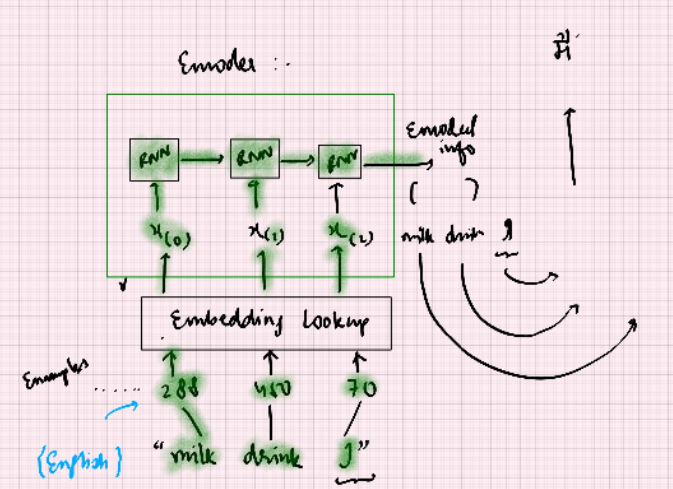 Encoder :-
RNN RNN RNN
Encoded
info
( )
x(0) x(1) x(2)
milk drink I
Embedding Lookup
Examples ......
288 480 70
{English}
"milk drink I"